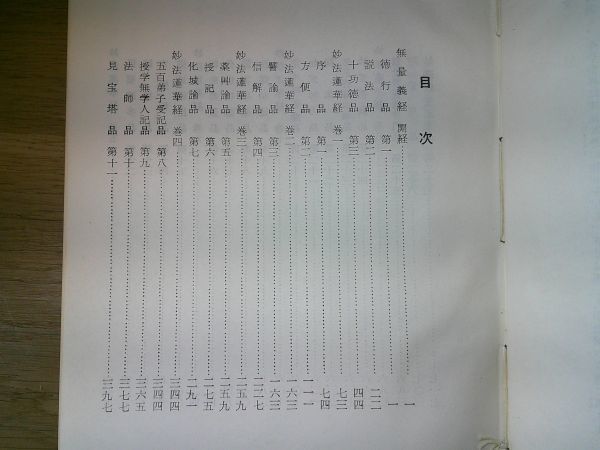 目次
無量義経 開経 一
徳行品 第一 一
説法品 第二 二二
十功徳品 第三 四四
妙法蓮華経 巻一 七三
序品 第一 七四
方便品 第二 一一一
妙法蓮華経 巻二 一六三
譬諭品 第三 一六三
信解品 第四 二二七
妙法蓮華経 巻三 二五九
薬艸諭品 第五 二五九
授記品 第六 二七五
化城諭品 第七 二九一
妙法蓮華経 巻四 三四四
五百弟子受記品 第八 三四四
授学無学人記品 第九 三六五
法師品 第十 三七七
見宝塔品 第十一 三九七